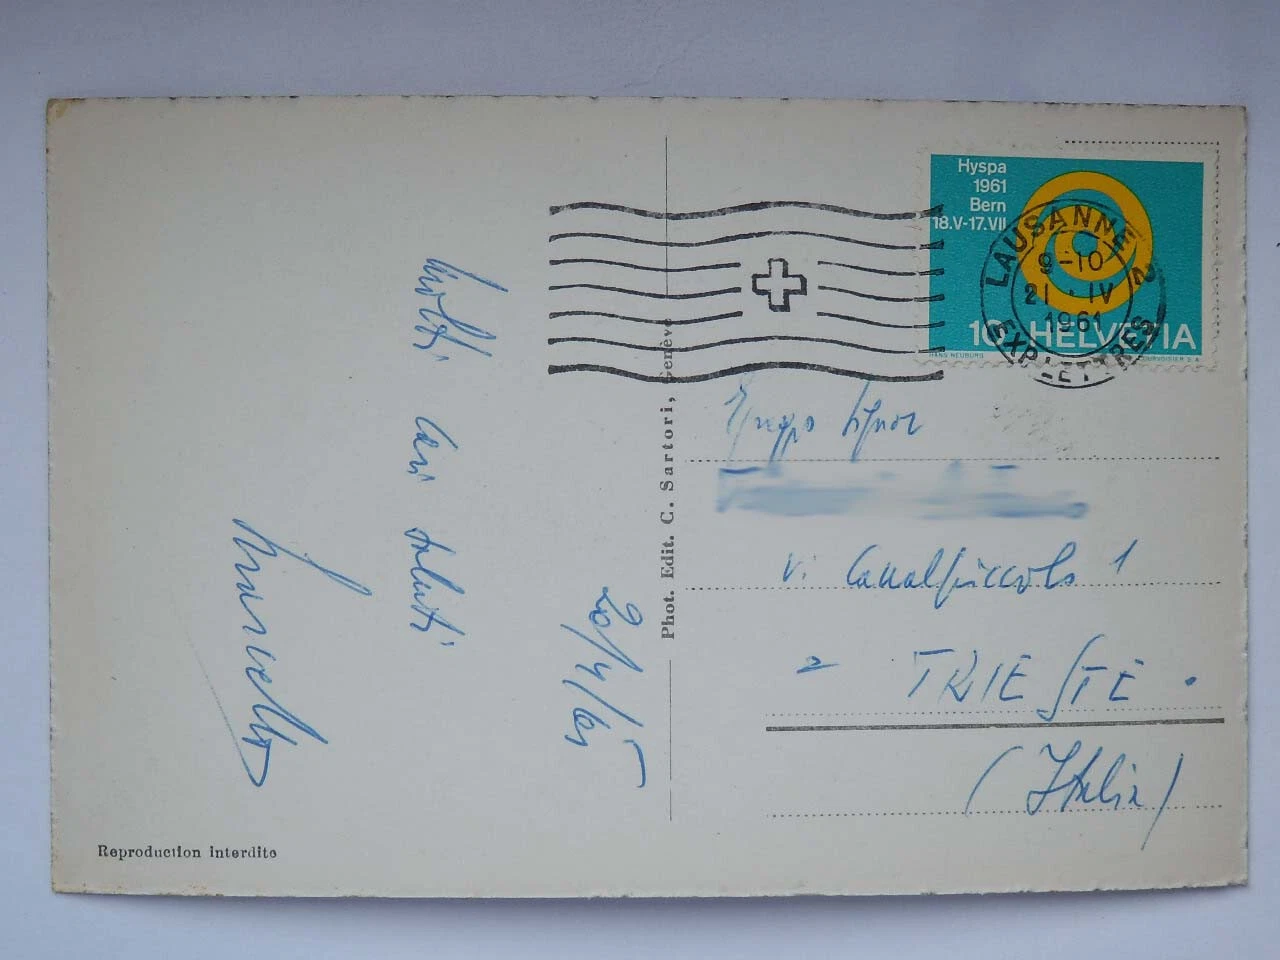 Hyspa
1961
Bern
18.V-17.VII
10 HELVETIA
HANS NEUBURG
COURVOISIER S.A.
LAUSANNE 2
9-10
21.IV
1961
EXP. LETTRES
Molti
cari saluti
Marcello
20/4/61
Phot. Edit. C. Sartori, Genève
Signor
V. Canalpiccolo 1
TRIESTE.
(Italia)
Reproduction interdite